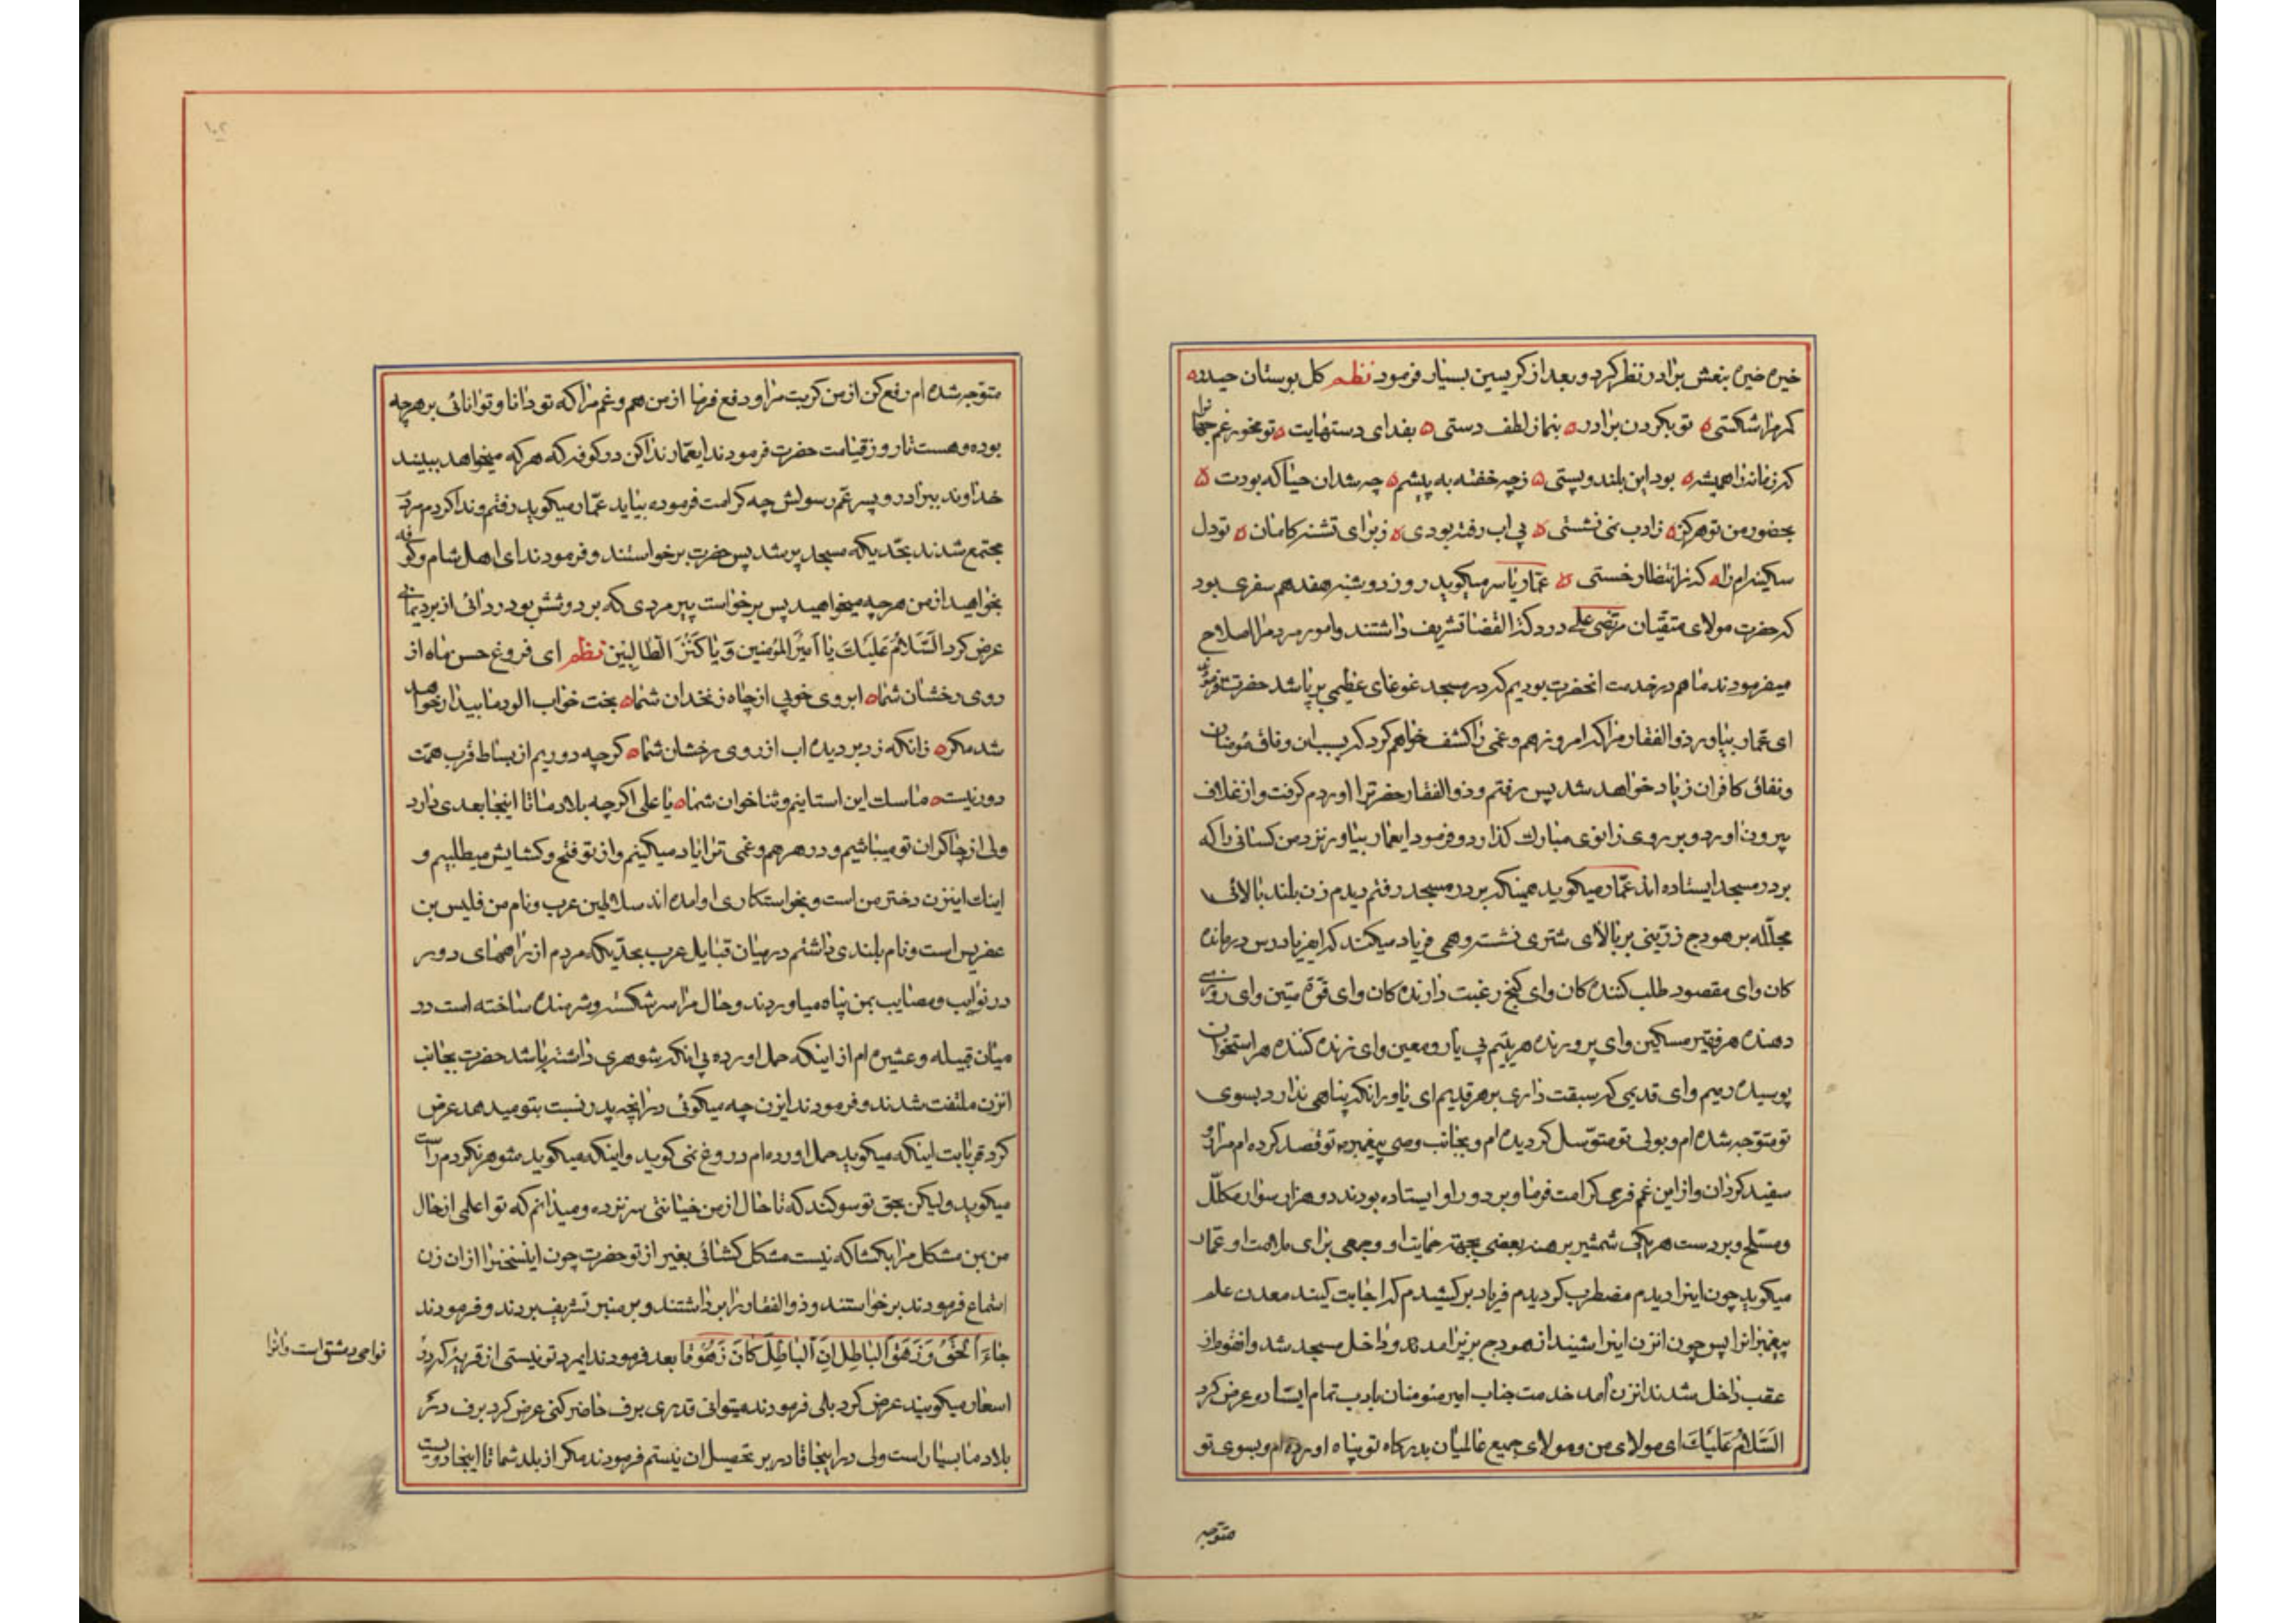 خیره خیره بنعش برادر نظر کرد و بعد از کریسین بسیار فرمود نظم کل بوستان حیدر ه
کمرم را شکستی ه تو بکردن برادر ه بنما ز لطف دستی ه بفدای دستهایت ه تو مخور غم جهانرا
که زمانه را همیشه ه بود این بلند و پستی ه ز چه خفته به پیشم ه چه شد ان حیا که بودت ه
بحضور من تو هرکز ه ز ادب نمی نشستی ه پی اب رفته بودی ه ز برای تشنه کامان ه تو دل
سکینه ام را ه که ز انتظار خستی ه عمّار یاسر میکوید روز دوشنبه هفدهم سفری بود
که حضرت مولای متقیان مرتضی علی در دکة القضا تشریف داشتند و امور مردم را اصلاح
میفرمودند ما هم در خدمت انحضرت بودیم که در مسجد غوغای عظیمی بر پا شد حضرت فرمودند
ای عمّار بیاور ذوالفقار مرا که امروز هم و غمی را کشف خواهم کرد که بسبب این وفاق مؤمنان
و نفاق کافران زیاد خواهد شد پس رفتم و ذوالفقار حضرترا اوردم کرفت و از غلاف
بیرون اورد و بر روی زانوی مبارک کذارد و فرمود ایعمار بیاور نزد من کسانی را که
بر در مسجد ایستاده اند عمّار میکوید همینکه بر در مسجد رفتم دیدم زن بلند بالائی
مجلّله بر هودج زرّینی بر بالای شتری نشسته و همی فریاد میکند که ایفریادرس درمانده
کان و ای مقصود طلب کننده کان و ای کنج رغبت دارنده کان و ای قوّة متین و ای روزی
دهنده هر فقیر مسکین و ای پرورنده هر یتیم بی یار و معین و ای زنده کننده هر استخوان
پوسیده رمیم و ای قدیمی که سبقت داری بر هر قدیم ای یاور انکه پناهی ندارد بسوی
تو متوّجه شده ام و بولی تو متوّسل کردیده ام و بجانب وصی پیغمبر تو قصد کرده ام مرا رو
سفید کردان و از این غم فرجی کرامت فرما و بر دور او ایستاده بودند دو هزار سوار مکلّل
و مسلّح و بر دست هر یکی شمشیر برهنه بعضی بجهة حمایت او و جمعی برای ملامت او عمّار
میکوید چون اینرا دیدم مضطرب کردیدم فریاد برکشیدم که اجابت کنید معدن علم
پیغمبر انرا پس چون انزن اینرا شنید از هودج بزیر امد و داخل مسجد شد و انقوم از
عقب داخل شدند انزن امد خدمت جناب امیر مئومنان بادب تمام ایستاد و عرض کرد
السَّلامُ عَلَیكَ ای مولای من و مولای جمیع عالمیان بدرکاه تو پناه اورده ام و بسوی تو
متوجه
۱۰۲
متوّجه شده ام رفع کن از من کربت مرا و دفع فرما از من هم و غم مرا که تو دانا و توانائی بر هر چه
بوده و هست تا روز قیامت حضرت فرمودند ایعمّار ندا کن در کوفه که هر که میخواهد ببیند
خداوند ببرادر و پسر عمّ رسولش چه کرامت فرموده بیاید عمّار میکوید رفتم و ندا کردم مردم
مجتمع شدند بحّدیکه مسجد پر شد پس حضرت برخواستند و فرمودند ای اهل شام و کوفه
بخواهید از من هر چه میخواهید پس برخواست پیر مردی که بر دوشش بود ردائی از برد یمانی
عرض کرد السَّلامُ عَلَیكَ یا اَمیرُ المؤمنین وَ یا کَنْزَ الطّالِبینَ نظم ای فروغ حسن ماه از
روی رخشان شما ه ابروی خوبی از چاه زنخدان شما ه بخت خواب الود ما بیدار خواهد
شد مکر ه زانکه زد بر دیده اب از روی رخشان شما ه کرچه دوریم از بساط قرب همّت
دور نیست ه ما سک این استانیم و ثناخوان شما ه یا علی اکرچه بلاد ما تا اینجا بعدی دارد
ولی از چاکران تو میباشیم و در هر هم و غمی ترا یاد میکینم و از تو فتح و کشایش میطلبیم و
اینک اینزن دختر من است و بخواستکاری او امده اند سلاطین عرب و نام من فلیس بن
عفریس است و نام بلندی داشتم در میان قبایل عرب بحدّیکه مردم از راههای دور
در نوایب و مصایب بمن پناه میاوردند و حال مرا سرشکسته و شرمنده ساخته است در
میان قبیله و عشیره ام از اینکه حمل اورده بی انکه شوهری داشته باشد حضرت بجانب
انزن ملتفت شدند و فرمودند ایزن چه میکوئی در انچه پدر نسبت بتو میدهد عرض
کرد قربانت اینکه میکوید حمل اورده ام دروغ نمی کوید و اینکه میکوید شوهر نکردم راست
میکوید ولیکن بحق تو سوکند که تا حال از من خیانتی سر نزده و میدانم که تو اعلمی از حال
من بمن مشکل مرا بکشا که نیست مشکل کشائی بغیر از تو حضرت چون اینسخنرا از ان زن
استماع فرمودند برخواستند و ذوالفقار را برداشتند و بر منبر تشریف بردند و فرمودند
جاءَ الْحَقُّ وَ زَهَقَ الْباطِلُ اِنَّ الْباطِلَ کانَ زَهُوقًا بعد فرمودند ایمرد تو نیستی از قریه که در
نواحی دمشق است و انرا
اسعار میکویند عرض کرد بلی فرمودند میتوانی قدری برف حاضر کنی عرض کرد برف در
بلاد ما بسیار است ولی در اینجا قادر بر تحصیل ان نیستم فرمودند مکر از بلد شما تا اینجا دویست